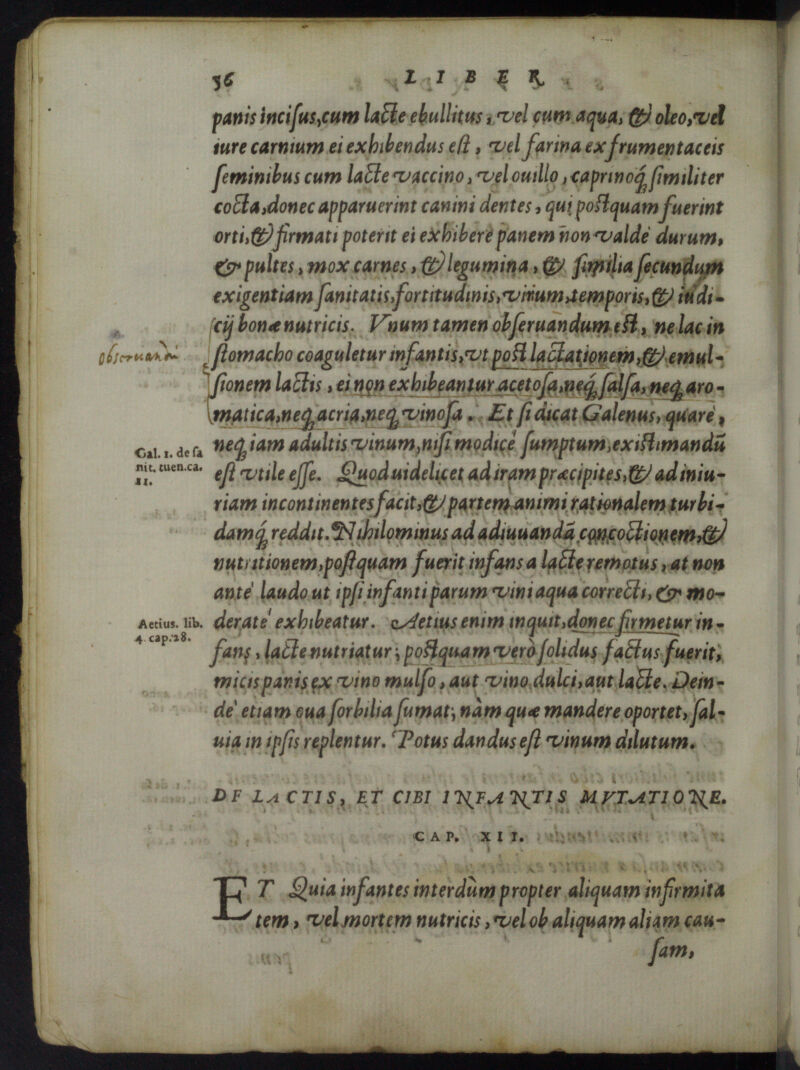 36 LIBER
panis incisus,cum lacte ebullitus, vel cum aqua, & oleo,vel
iure carnium ei exhibendus est, vel farina ex frumentaceis
seminibus cum lacte vaccino, vel ouillo, caprinoq; similiter
cocta,donec apparuerint canini dentes, qui postquam fuerint
orti,& firmati poterit ei exhibere panem non valde durum,
& pultes, mox carnes, & legumina, & similia secundum
exigentiam sanitatis,fortitudinis,virium,temporis,& iudi-
cij bonæ nutricis. Vnum tamen obseruandum est, ne lac in
stomacho coaguletur infantis,vt post lactationem,& emul-
sionem lactis, ei non exhibeantur acetosa,neq; salsa, neq; aro-
matica,neq; acria,neq; vinosa. Et si dicat Galenus, quare,
Gal. 1. de sa
nit. tuen.ca.
11.
neq; iam adultis vinum,nisi modice sumptum,existimandũ
est vtile esse. Quod uidelicet ad iram præcipites,& ad iniu-
riam incontinentes facit,& partem animi rationalem turbi-
damq; reddit. Nihilominus ad adiuuandã concoctionem,&
nutritionem,postquam fuerit infans a lacte remotus, at non
ante laudo ut ipsi infanti parum vini aqua correcti, & mo-
Aetius. lib.
4 cap.28.
derate exhibeatur. Aetius enim inquit,donec firmetur in-
fans, lacte nutriatur; postquam verò solidus factus fuerit,
micis panis ex vino mulso, aut vino dulci,aut lacte. Dein-
de etiam oua sorbilia sumat; nàm quæ mandere oportet, sal-
uia in ipsis replentur. Potus dandus est vinum dilutum.
DE LACTIS, ET CIBI INFANTIS MVTATIONE.
CAP. XII.
ET Quia infantes interdùm propter aliquam infirmita
tem, vel mortem nutricis, vel ob aliquam aliam cau-
sam,